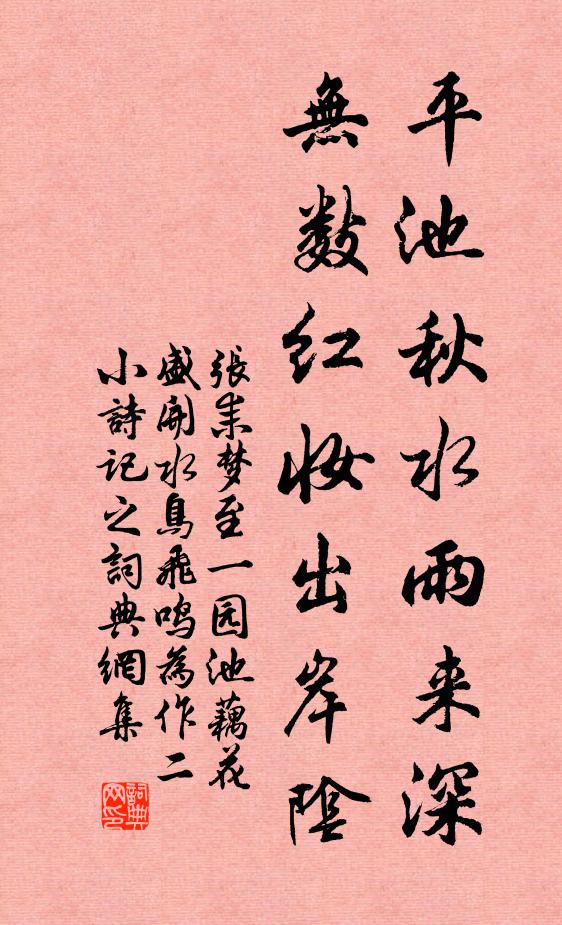 平池秋水雨来深
無数红妆出岸陰
張耒梦至一园池藕花
盛開水鳥飛鸣為作二
小詩记之詞典網集
詞典
网印